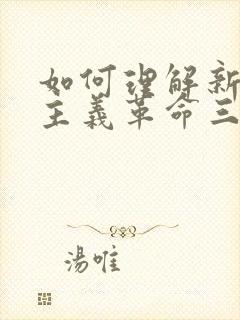 如何理解新
主義革命三
湯唯